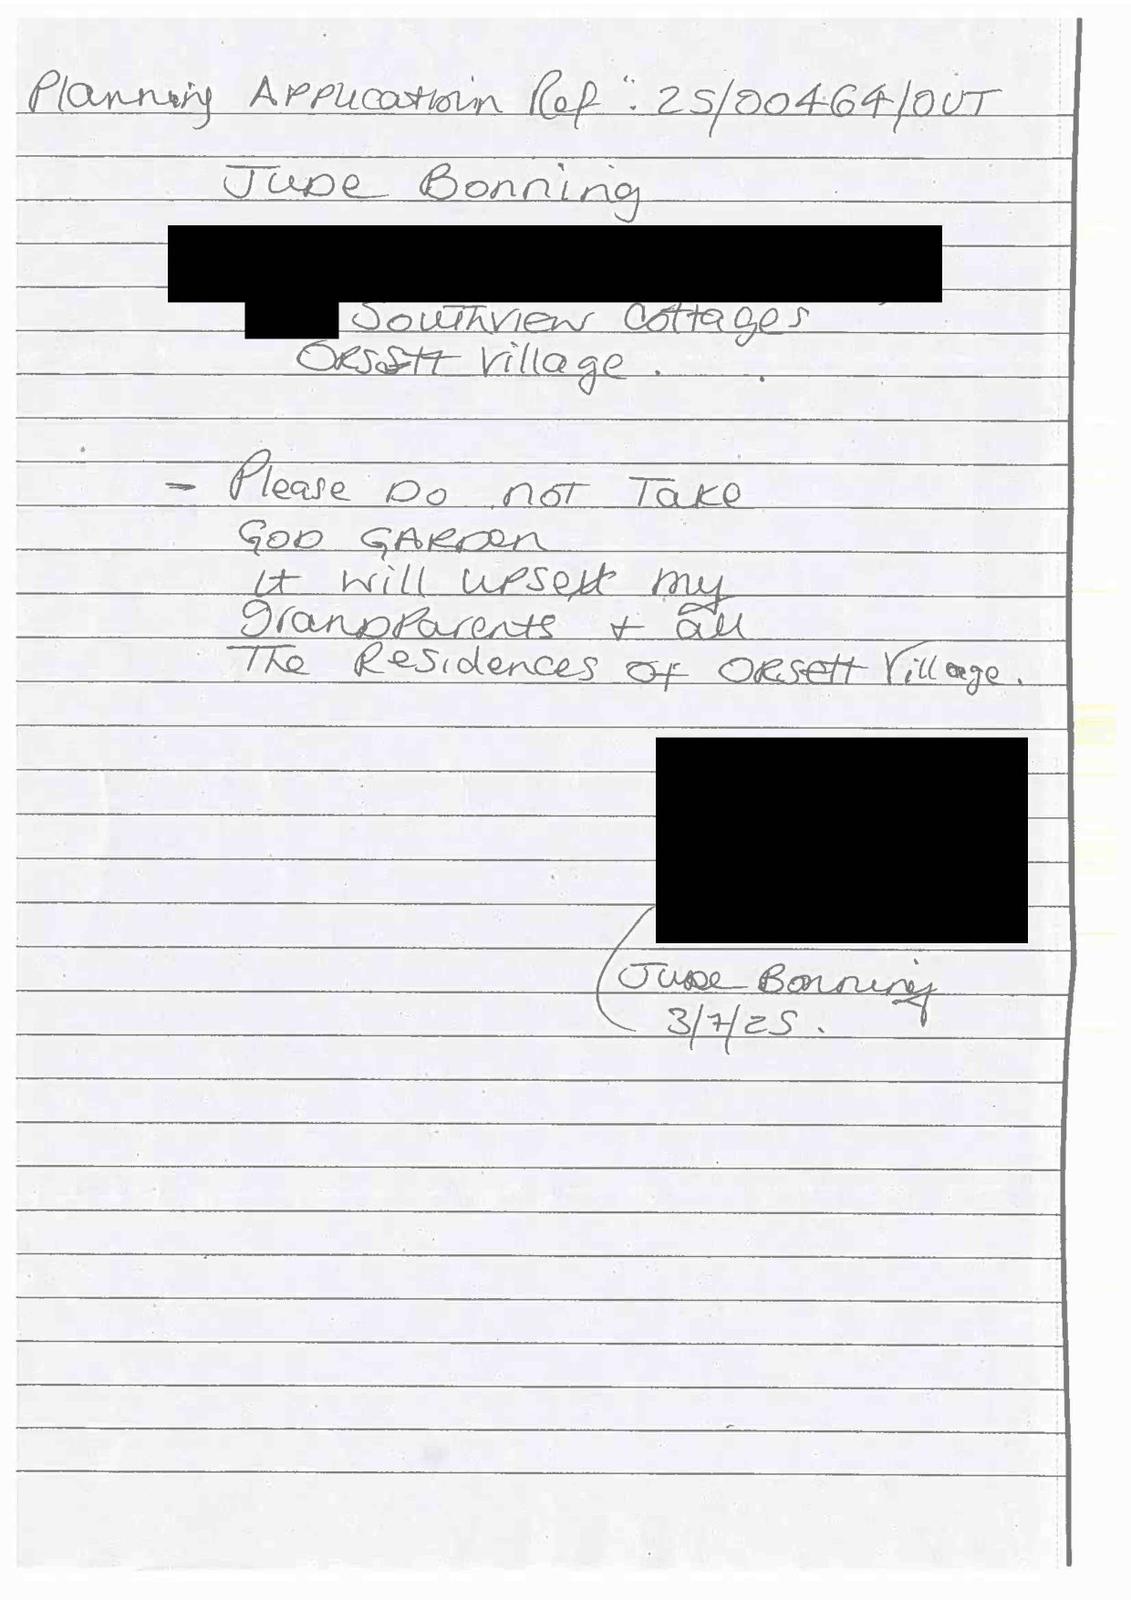 Planning Application Ref: 25/00464/OUT
Jude Bonning
Southview Cottages
Orsett Village.
- Please Do not Take
GOD GARDEN
it will upsett my
grandparents + all
The Residences of Orsett Village.
Jude Bonning
3/7/25.